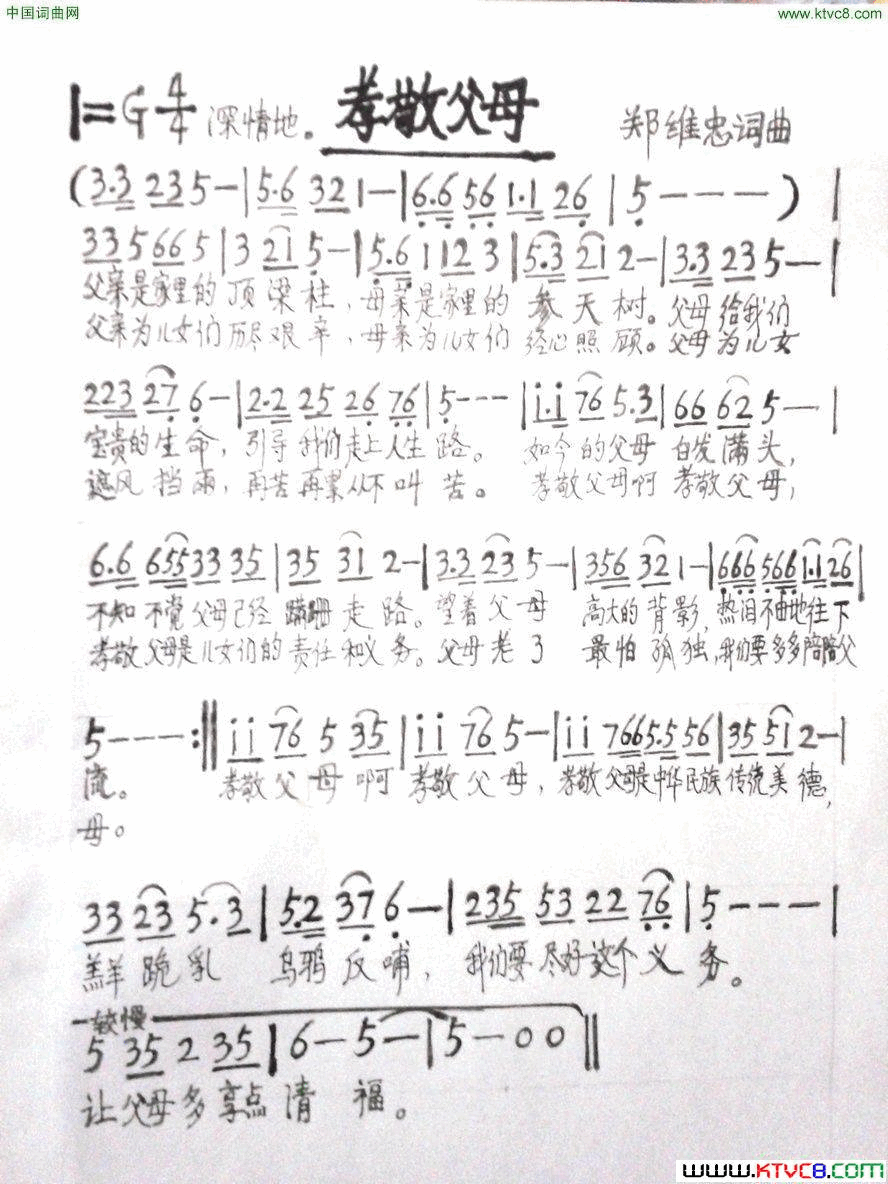 中国词曲网 www.ktvc8.com
1=G 4/4 深情地。 孝敬父母 郑维忠词曲
(3.3 23 5 - | 5.6 32 1 - | 6.6 56 1.1 26 | 5 - - - ) |
33 5 66 5 | 3 21 5 - | 5.6 1 12 3 | 5.3 21 2 - | 3.3 23 5 - |
父亲是家里的顶梁柱,母亲是家里的参天树。父母给我们
父亲为儿女们历尽艰辛,母亲为儿女们经心照顾。父母为儿女
223 27 6 - | 2.2 25 26 76 | 5 - - - | i.i 76 5.3 | 66 62 5 - |
宝贵的生命,引导我们走上人生路。如今的父母白发满头,
遮风挡雨,再苦再累从不叫苦。孝敬父母啊孝敬父母,
6.6 655 33 35 | 35 31 2 - | 3.3 23 5 - | 356 32 1 - | 666 566 1.1 26 |
不知不觉父母已经蹒跚走路。望着父母高大的背影,热泪不由地往下
孝敬父母是儿女们的责任和义务。父母老了最怕孤独,我们要多多陪陪父
5 - - - :|| i i 76 5 35 | i i 76 5 - | i i 766 5.5 56 | 35 51 2 - |
流。 孝敬父母啊孝敬父母,孝敬父母是中华民族传统美德,
母。
33 23 5.3 | 5.2 37 6 - | 235 53 22 76 | 5 - - - |
羔羊跪乳 乌鸦反哺,我们要尽好这个义务。
较慢
5 35 2 35 | 6 - 5 - | 5 - 0 0 ||
让父母多享点清福。
www.KTVC8.com